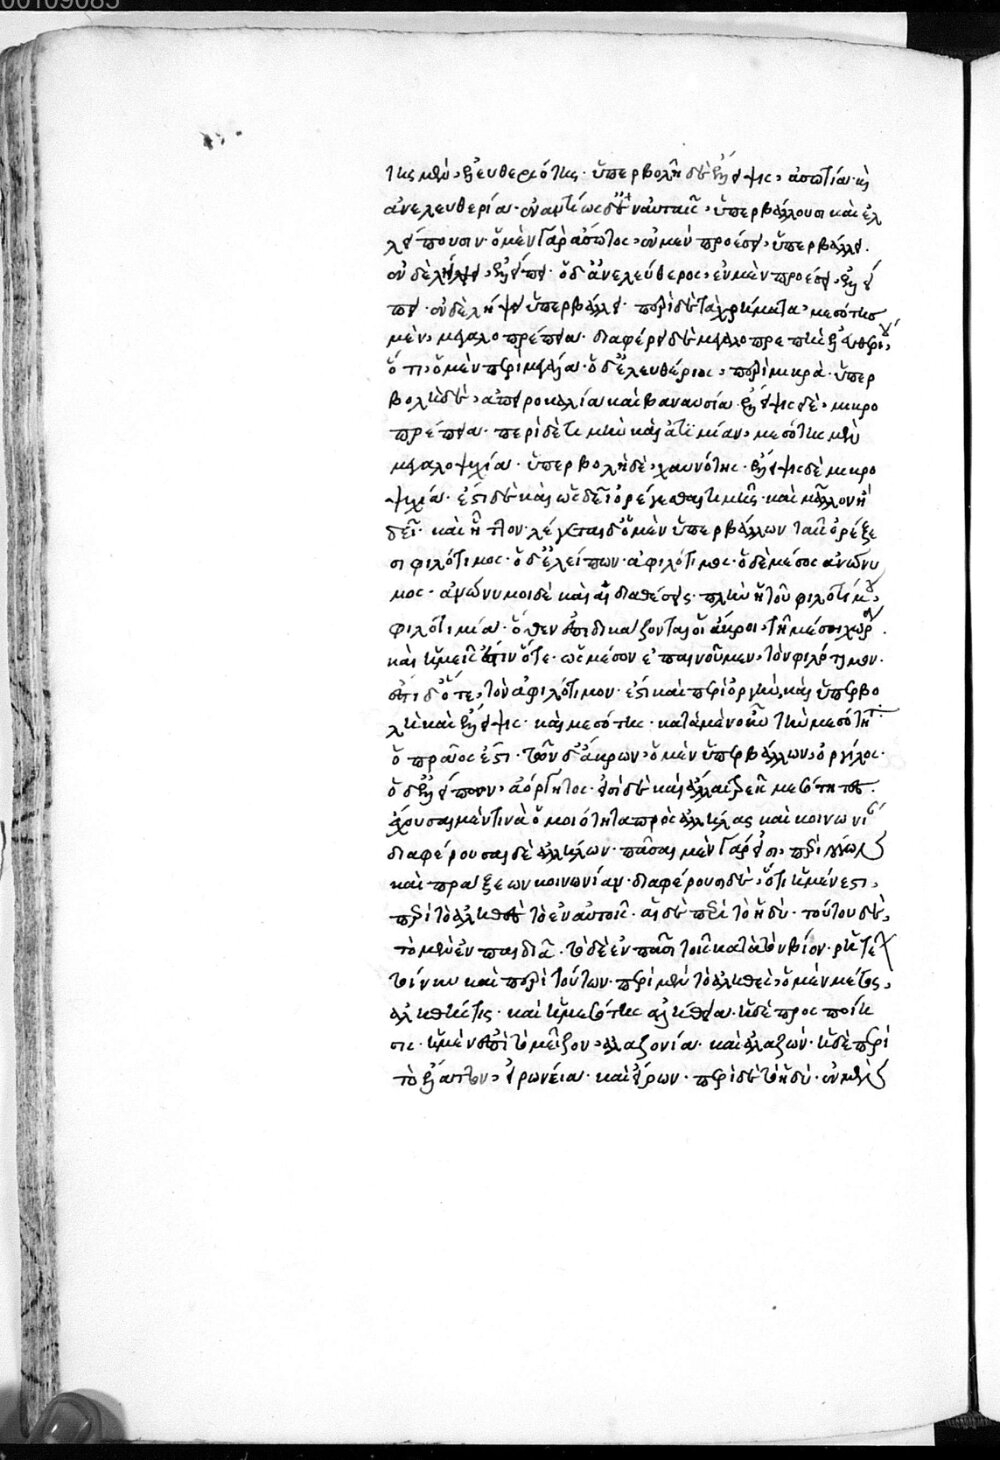 της μὲν, ἐλευθεριότης· ὑπερβολὴ δὲ καὶ ἔλλειψις, ἀσωτία καὶ
ἀνελευθερία· ἐναντίως δὲ ἐν αὐταῖς, ὑπερβάλλουσι καὶ ἐλ
λείπουσιν· ὁ μὲν γὰρ ἄσωτος, ἐν μὲν προέσει, ὑπερβάλλει·
ἐν δὲ λήψει, ἐλλείπει· ὁ δ' ἀνελεύθερος, ἐν μὲν προέσει, ἐλλεί
πει· ἐν δὲ λήψει ὑπερβάλλει· περὶ δὲ τὰ χρήματα, μεσότης
μὲν, μεγαλοπρέπεια· διαφέρει δὲ μεγαλοπρεπὴς ἐλευθερίου,
ὅτι, ὁ μὲν περὶ μεγάλα· ὁ δ' ἐλευθέριος, περὶ μικρά· ὑπερ
βολὴ δὲ, ἀπειροκαλία καὶ βαναυσία· ἔλλειψις δὲ, μικρο
πρέπεια· περὶ δὲ τιμὴν καὶ ἀτιμίαν, μεσότης μὲν
μεγαλοψυχία· ὑπερβολὴ δὲ, χαυνότης· ἔλλειψις δὲ μικρο
ψυχία· ἔστι δὲ καὶ ὡς δεῖ ὀρέγεσθαι τιμῆς· καὶ μᾶλλον ἢ
δεῖ· καὶ ἧττον· λέγεται δ' ὁ μὲν ὑπερβάλλων ταῖς ὀρέξε
σι φιλότιμος· ὁ δ' ἐλλείπων· ἀφιλότιμος· ὁ δὲ μέσος ἀνώνυ
μος· ἀνώνυμοι δὲ καὶ αἱ διαθέσεις· πλὴν ἡ τοῦ φιλοτίμου,
φιλοτιμία· ὅθεν ἐπιδικάζονται οἱ ἄκροι, τῆς μέσης χώρας·
καὶ ἡμεῖς ἔστιν ὅτε· ὡς μέσον ἐπαινοῦμεν, τὸν φιλότιμον·
ἔστι δ' ὅτε, τὸν ἀφιλότιμον· ἔστι καὶ περὶ ὀργὴν, καὶ ὑπερβο
λὴ καὶ ἔλλειψις· καὶ μεσότης· κατὰ μὲν οὖν τὴν μεσότητα·
ὁ πρᾶος ἐστὶ· τῶν δ' ἄκρων, ὁ μὲν ὑπερβάλλων, ὀργίλος·
ὁ δ' ἐλλείπων, ἀόργητος· εἰσὶ δὲ καὶ ἄλλαι τρεῖς μεσότητες·
ἔχουσαι μέν τινα ὁμοιότητα πρὸς ἀλλήλας καὶ κοινωνίαν
διαφέρουσαι δὲ ἀλλήλων· πᾶσαι μὲν γάρ εἰσι, περὶ λόγων
καὶ πράξεων κοινωνίαν· διαφέρουσι δὲ, ὅτι ἡ μέν ἐστι,
περὶ τὸ ἀληθὲς τὸ ἐν αὐτοῖς· αἱ δὲ περὶ τὸ ἡδύ· τούτου δὲ,
τὸ μὲν ἐν παιδιᾷ· τὸ δὲ ἐν πᾶσι τοῖς κατὰ τὸν βίον· ῥητέ
ον οὖν καὶ περὶ τούτων· περὶ μὲν τὸ ἀληθὲς, ὁ μὲν μέσος,
ἀληθής τις· καὶ ἡ μεσότης ἀλήθεια· ἡ δὲ προσποίη
σις· ἡ μὲν ἐπὶ τὸ μεῖζον, ἀλαζονεία· καὶ ἀλαζών· ἡ δὲ περὶ
τὸ ἔλαττον, εἰρωνεία· καὶ εἴρων· περὶ δὲ τὸ ἡδύ· ἐν μὲν